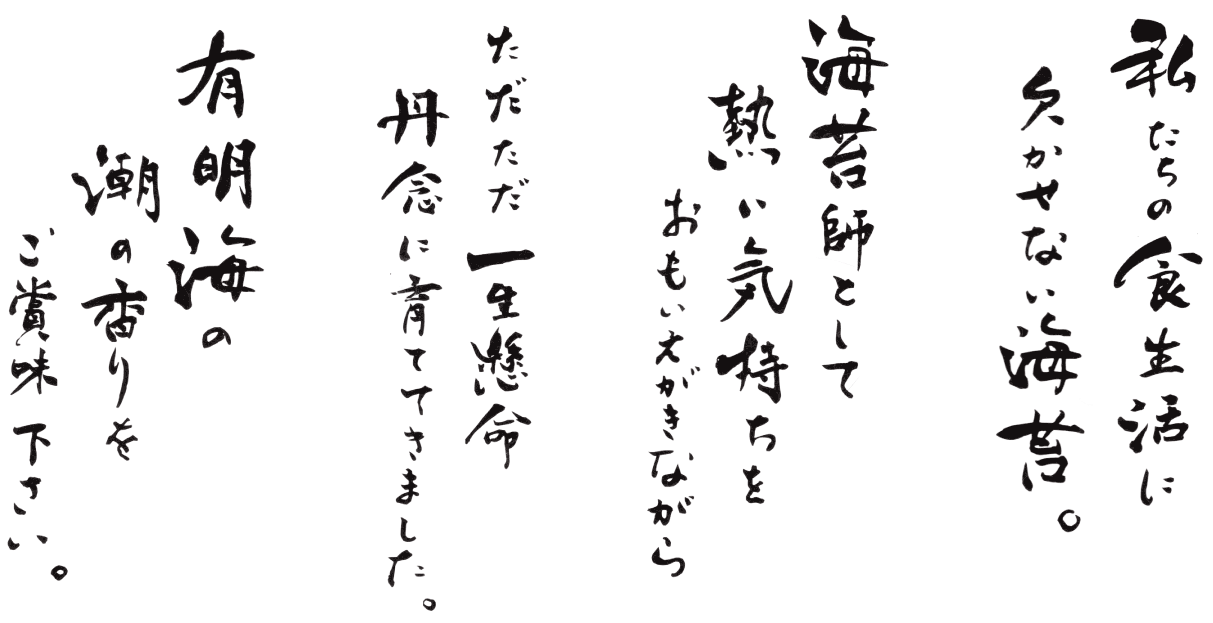 私たちの食生活に
欠かせない海苔。
海苔師として
熱い気持ちを
おもいえがきながら
ただただ一生懸命
丹念に育ててきました。
有明海の
潮の香りを
ご賞味下さい。